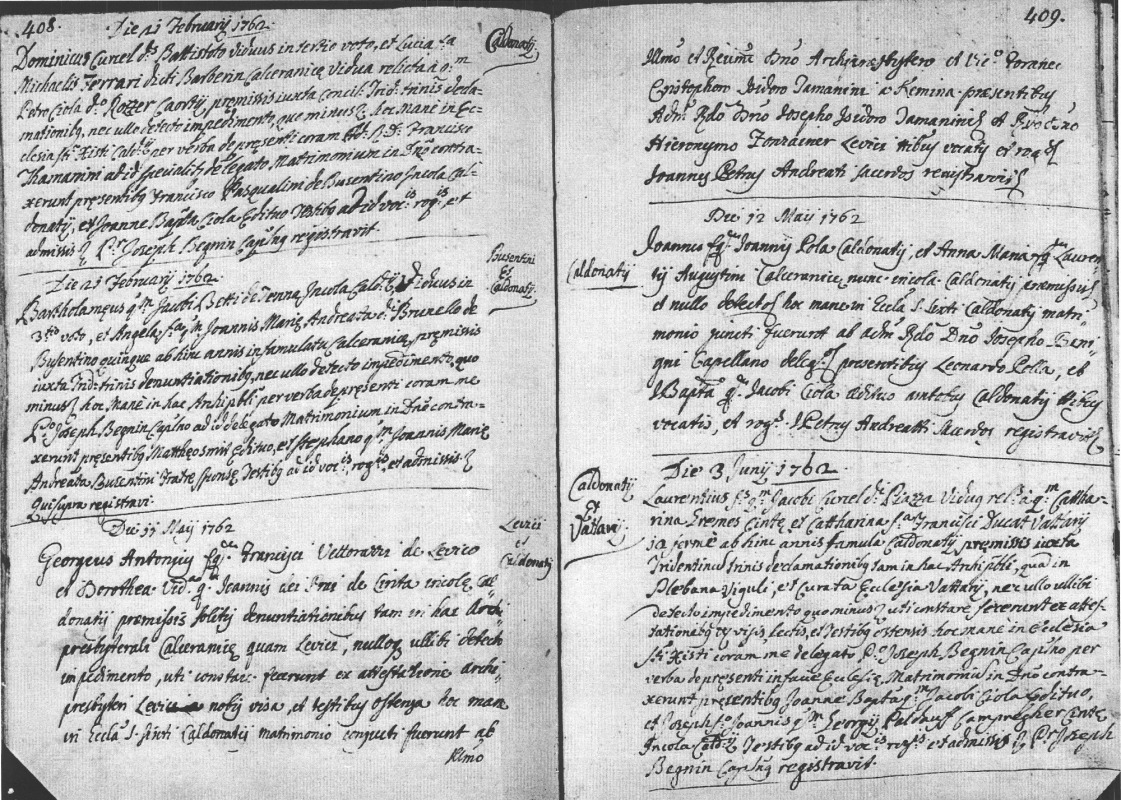 408.
Die 21 Februarij 1762.
Caldonatij
Dominicus Curel dti Battistoto viduus in tertio voto, et Lucia fa
Michaelis Ferrari dicti Barberin Calceranicę vidua relicta a qm
Petro Ciola do Rozzer Caortij, pręmissis iuxta Concil: Trid: trinis decla-
mationibq, nec ullo detecto impedimento, quo minus &, hoc Mane in Ec-
clesia Sti Xisti Cald: per verba de pręsenti coram D. Francisco
Thamanin ad id specialit. delegato Matrimonium in Dno contra-
xerunt pręsentibq Francisco Pasqualini de Busentino Incola Cal-
donatij, et Joanne Bapta Ciola Edituo Testibq ad id voc.is rog.is et
admissis & Pr Joseph Begnin Caplnq registravit.
Die 21 Februarij 1762.
Busentini
Et
Caldonatij
Bartholamęus qm Jacobi Betti de Jenna Incola Cald: Viduus in
3tio voto, et Angela fa qm Joannis Marię Andreata di Brunello de
Busentino quinque ab hinc annis in famulatu Calceranicę, pręmissis
iuxta Trid: trinis denuntiationibq, nec ullo detecto impedimento, quo
minus & hoc Mane in hac Archipbli per verba de pręsenti coram me
Pdo Joseph Begnin Caplno ad id delegato Matrimonium in Dno contra-
xerunt pręsentibq Matthęo Edituo, et Stephano qm Joannis Marię
Andreata Busentini fratre sponsę Testibq ad id voc.is rog.is et admissis &
Qui supra registravi.
Die 11 Maij 1762
Levici
et
Caldonatij
Georgeus Antonius fq Francisci Vettorazzi de Levico
et Dorothea Vid. q. Joannis de Cinta incolę Cal
donatij pręmissis solitis denuntiationibus tam in hac Archi-
presbyterali Calceranicę quam Levici, nulloq ullibi detecto
impedimento, uti constare fecerunt ex attestatione archi-
presbyteri Levici nobis visa, et testibus ostensa hoc mane
in Eccla S. Sixti Caldonatij matrimonio conjuncti fuerunt ab
Rlmo
409.
Illmo et Reumo Dno Archipręsbytero et Vic.o Foraneo
Cristophoro Isidoro Tamanini a Remina pręsentibus
Adm. Rdo Dno Josepho Isidoro Tamanini & et Rdo Dno
Hieronymo Levici titbus vocatis et rog.
Joannes Petrus Andreatti Sacerdos registravit &
Die 12 Maij 1762
Caldonatij
Joannes fq Joannis Pola Caldonatij, et Anna Maria fq Lauren-
tij Augustini Calceranicę nunc incola Caldonatij pręmissis &
et nullo detecto & hoc mane in Eccla S. Sixti Caldonatij matri-
monio juncti fuerunt ab adm Rdo Dno Josepho Beni-
gni Capellano deleg. & pręsentibus Leonardo Polla, et
J Bapta q. Jacobi Ciola ędituo ambobus Caldonatij titbus
vocatis, et rog. J Petrus Andreatti Sacerdos registravit &
Die 3 Junij 1762.
Caldonatij
Et
Vattarij
Laurentius fs qm Jacobi Curel di Piazza Viduq relts a qm Cattha-
rina Gremes Cintę, et Catthanna fa Francisci Ducat Vattarij
ia fermè ab hinc annis famula Caldonatij pręmissis iuxta
Tridentinu trinis declamationibq tam in hac Archipbli, qua in
Plebana Viguli, et Curata Ecclesia Vattarij, nec ullo ullibi
detecto impedimento quo minus & uti constare fecerunt ex attes-
tationibq visis lectis, et Testibq ostensis hoc mane in Ecclesia
Sti Xisti coram me delegato Po Joseph Begnin Caplno per
verba de pręsenti in facie Ecclesię Matrimoniu in Dno contra-
xerunt pręsentibq Joanne Bapta qm Jacobi Ciola Edituo,
et Joseph fo Joannis qm Georgij Campregher Centę
Incola Cald: Testibq ad id voc.is rog.is et admissis & Pr Joseph
Begnin Caplnq registravit.